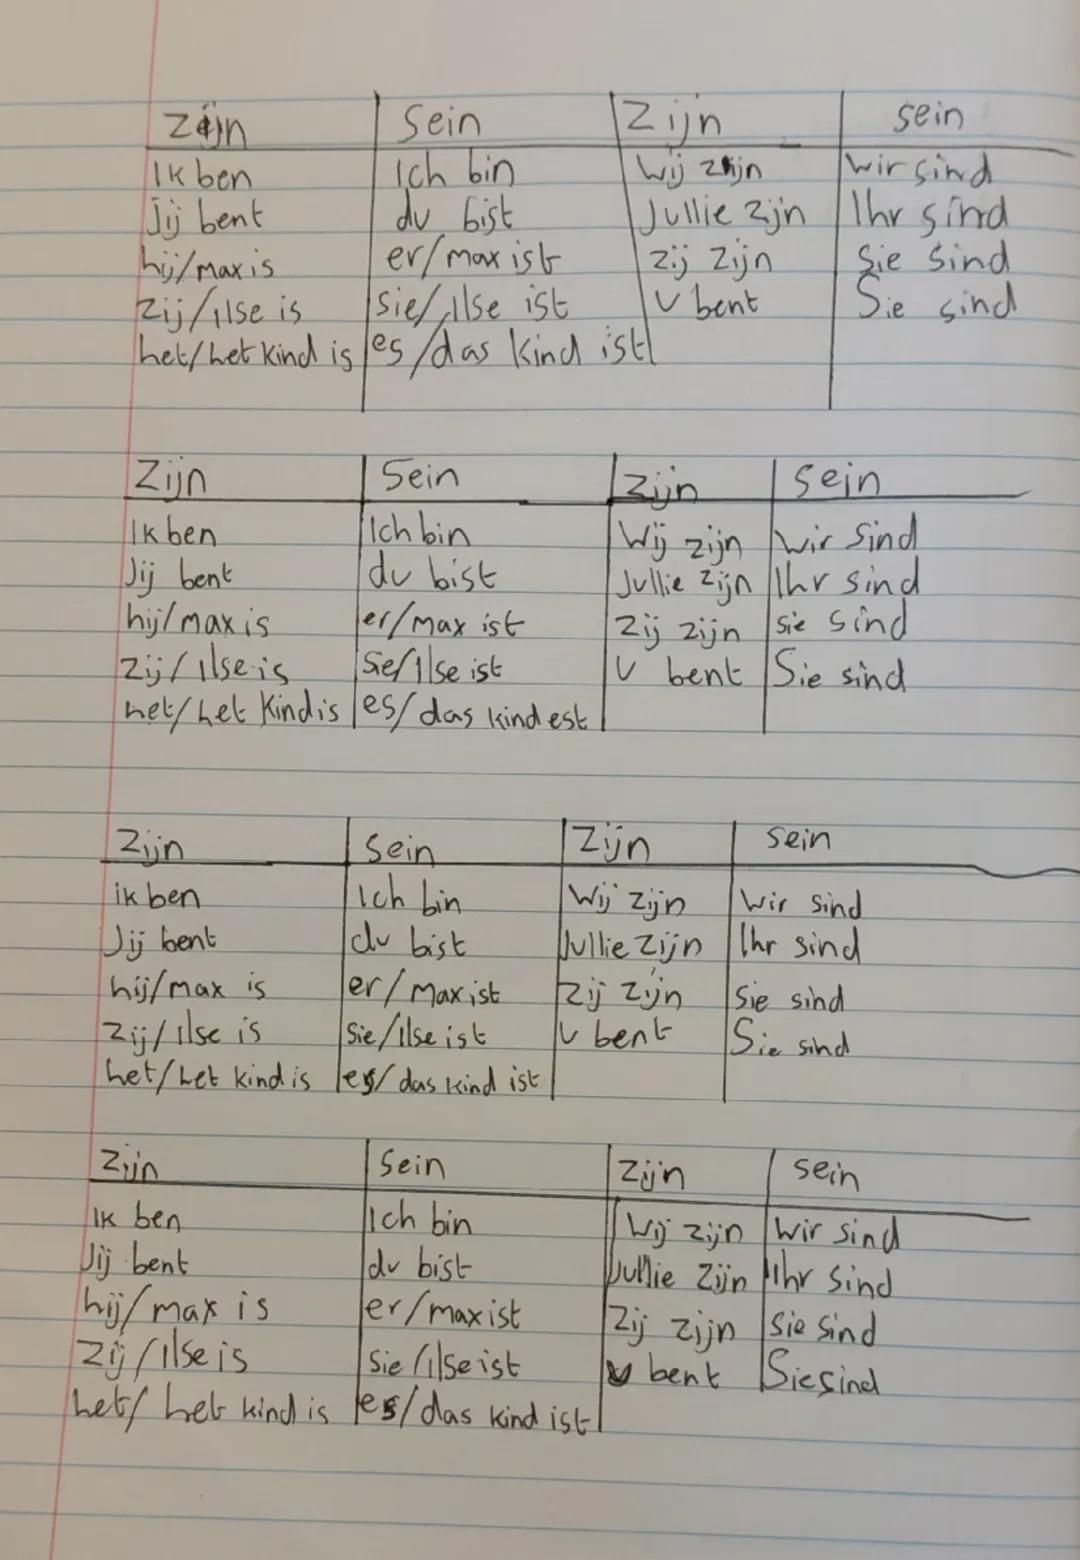 Zijn sein Zijn sein
Ik ben Ich bin Wij zijn Wir sind
Jij bent du bist Jullie zijn Ihr sind
hij/max is er/max ist zij zijn Sie sind
Zij/ilse is sie/ilse ist U bent Sie sind
het/het kind is es/das kind ist
Zijn Sein Zijn sein
Ik ben Ich bin Wij zijn Wir sind
Jij bent du bist Jullie zijn Ihr sind
hij/max is er/max ist Zij zijn sie sind
Zij/ilse is Sie/ilse ist U bent Sie sind
het/het Kind is es/das kind est
Zijn sein Zijn sein
ik ben Ich bin Wij zijn Wir sind
Jij bent du bist Jullie Zijn Ihr sind
hij/max is er/max ist Zij Zijn Sie sind
Zij/ilse is Sie/ilse ist U bent Sie sind
het/het kind is es/das kind ist
Zijn Sein Zijn sein
Ik ben Ich bin Wij zijn Wir sind
Jij bent du bist Jullie Zijn Ihr sind
hij/max is er/max ist Zij zijn Sie sind
Zij/ilse is Sie/ilse ist U bent Sie sind
het/het kind is es/das kind ist